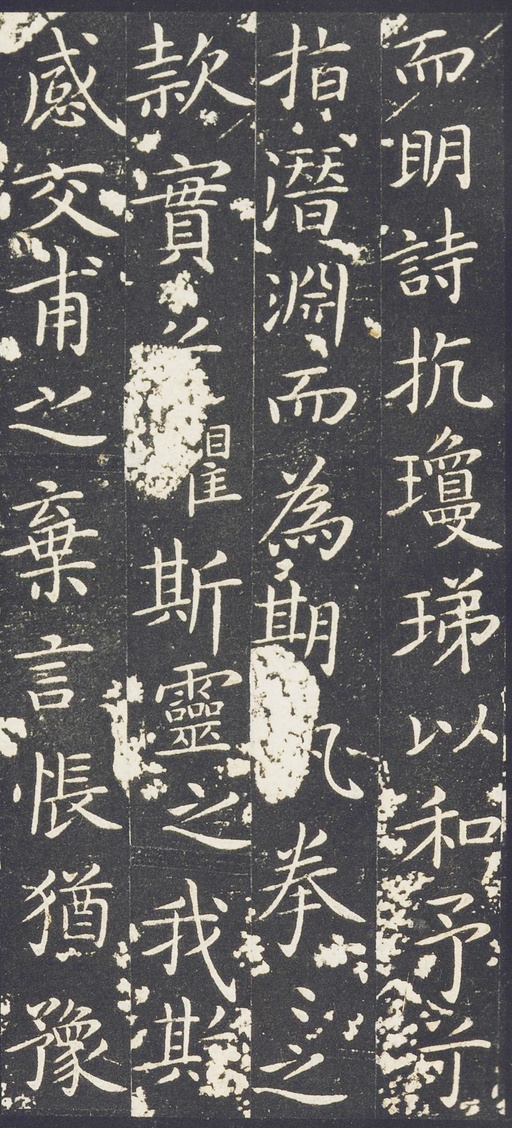 而明詩抗瓊珶以和予兮
指潛淵而為期 拳之
款實 斯靈之我
感交甫之棄言悵猶豫